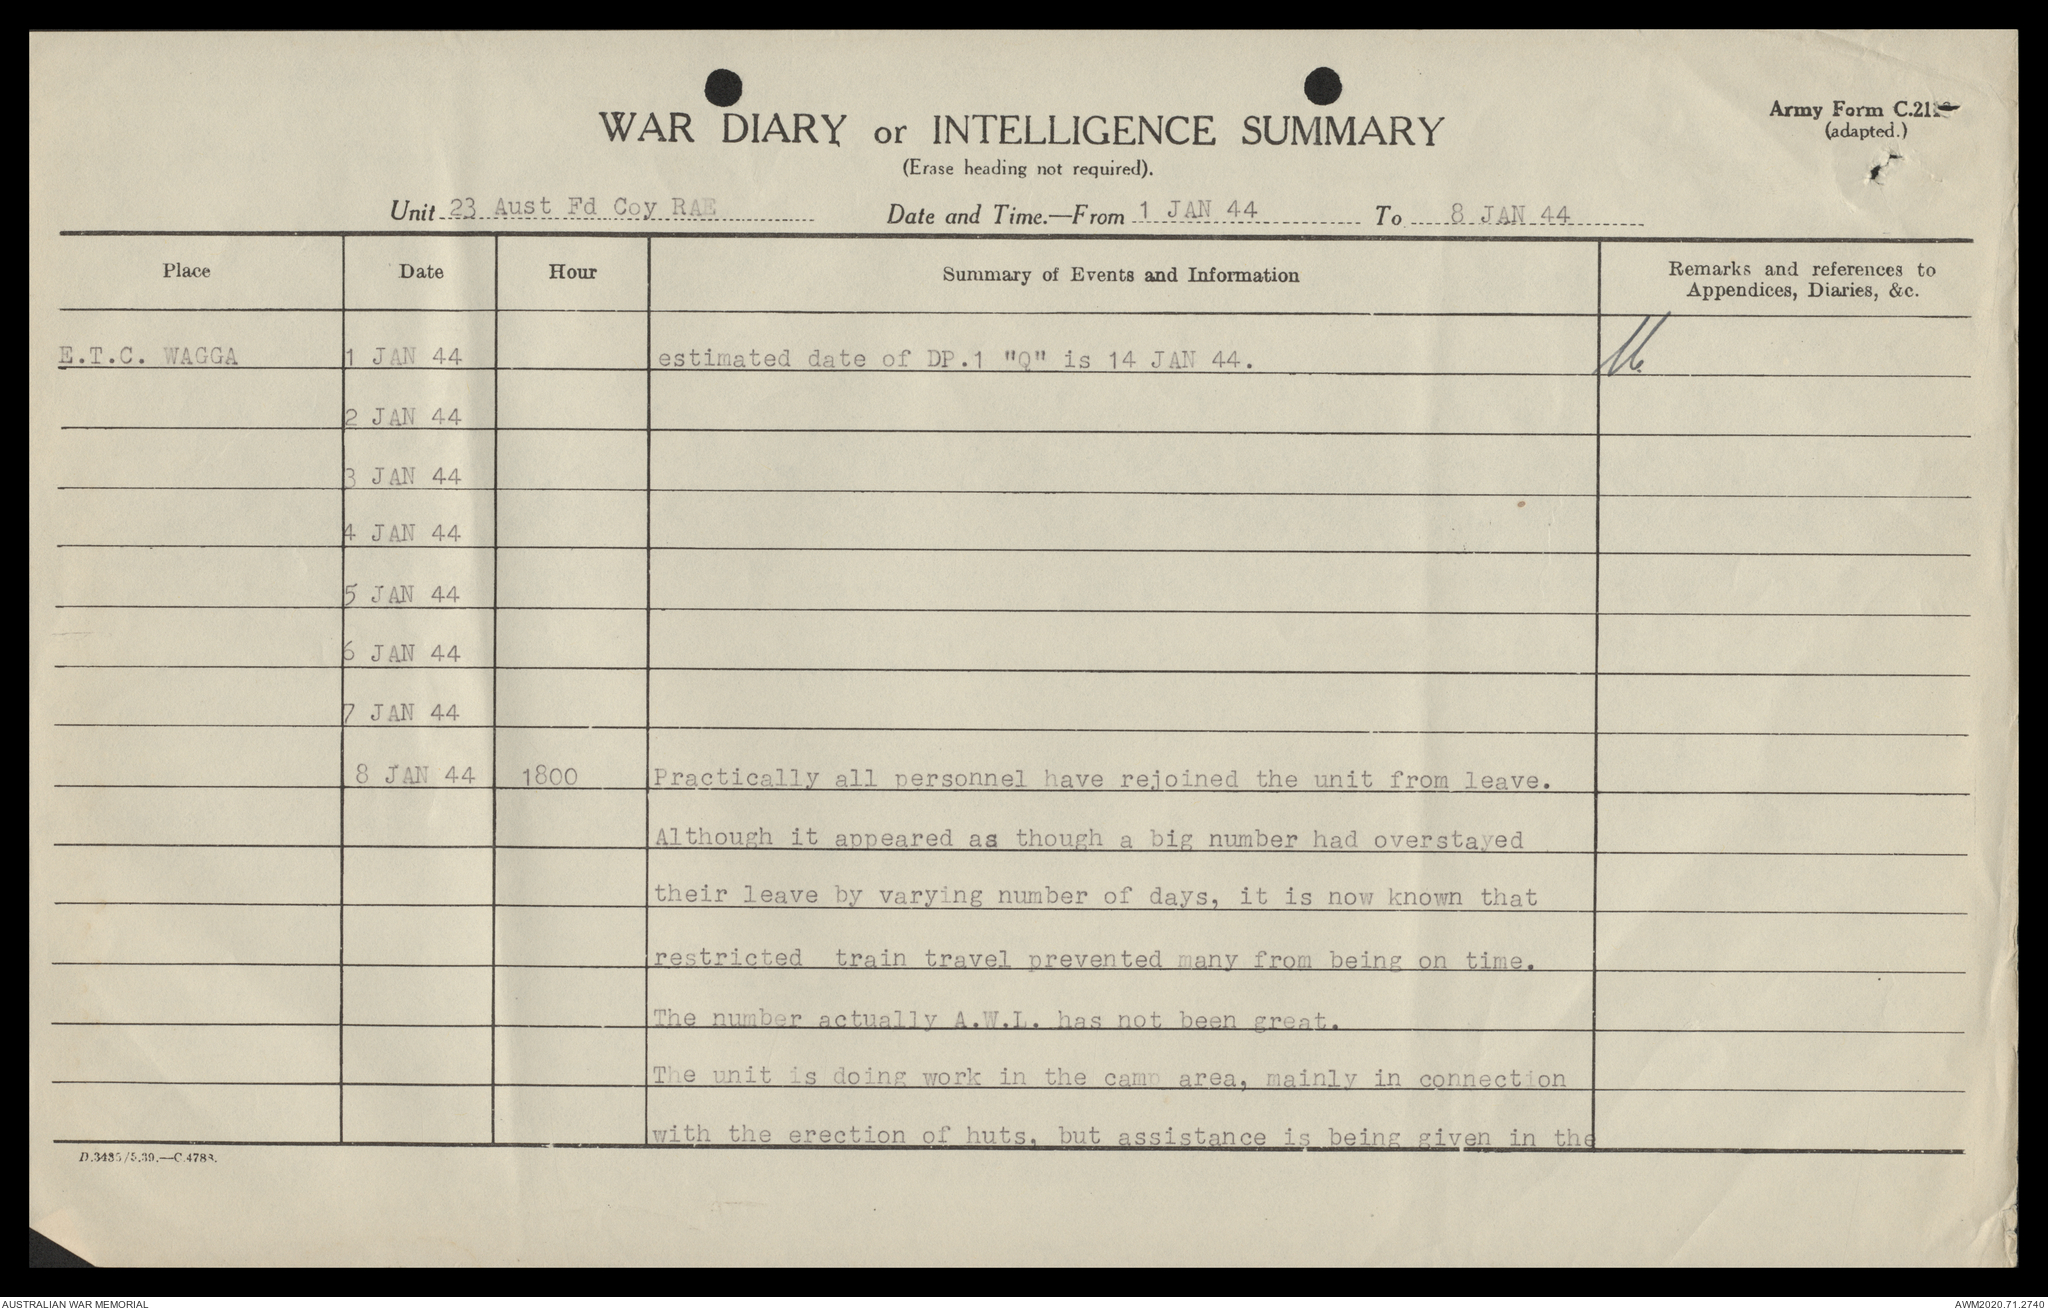 WAR DIARY or INTELLIGENCE SUMMARY
(Erase heading not required).
Army Form C.211
(adapted.)
Unit 23 Aust Fd Coy RAE Date and Time.—From 1 JAN 44 To 8 JAN 44
Place Date Hour Summary of Events and Information Remarks and references to
Appendices, Diaries, &c.
E.T.C. WAGGA 1 JAN 44 estimated date of DP.1 "Q" is 14 JAN 44.
2 JAN 44
3 JAN 44
4 JAN 44
5 JAN 44
6 JAN 44
7 JAN 44
8 JAN 44 1800 Practically all personnel have rejoined the unit from leave.
Although it appeared as though a big number had overstayed
their leave by varying number of days, it is now known that
restricted train travel prevented many from being on time.
The number actually A.W.L. has not been great.
The unit is doing work in the camp area, mainly in connection
with the erection of huts, but assistance is being given in the
D.3483/5.39.—C.4783.
AUSTRALIAN WAR MEMORIAL
AWM2020.71.2740